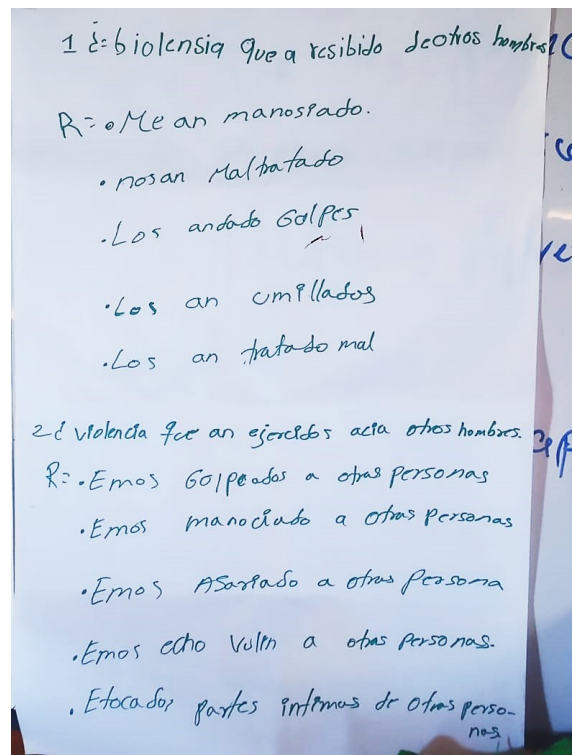 1 ¿= biolensia que a resibido de otros hombres
R= • Me an manosiado.
• nosan Maltratado
• Los andado Golpes
• Los an umillados
• Los an tratado mal
2 ¿ violencia que an ejercidos acia otros hombres.
R= • Emos Golpeados a otras personas
• Emos manociado a otras personas
• Emos a otras Persona
• Emos echo Vulin a otras personas.
• Etocados partes intimas de otras perso-
nas